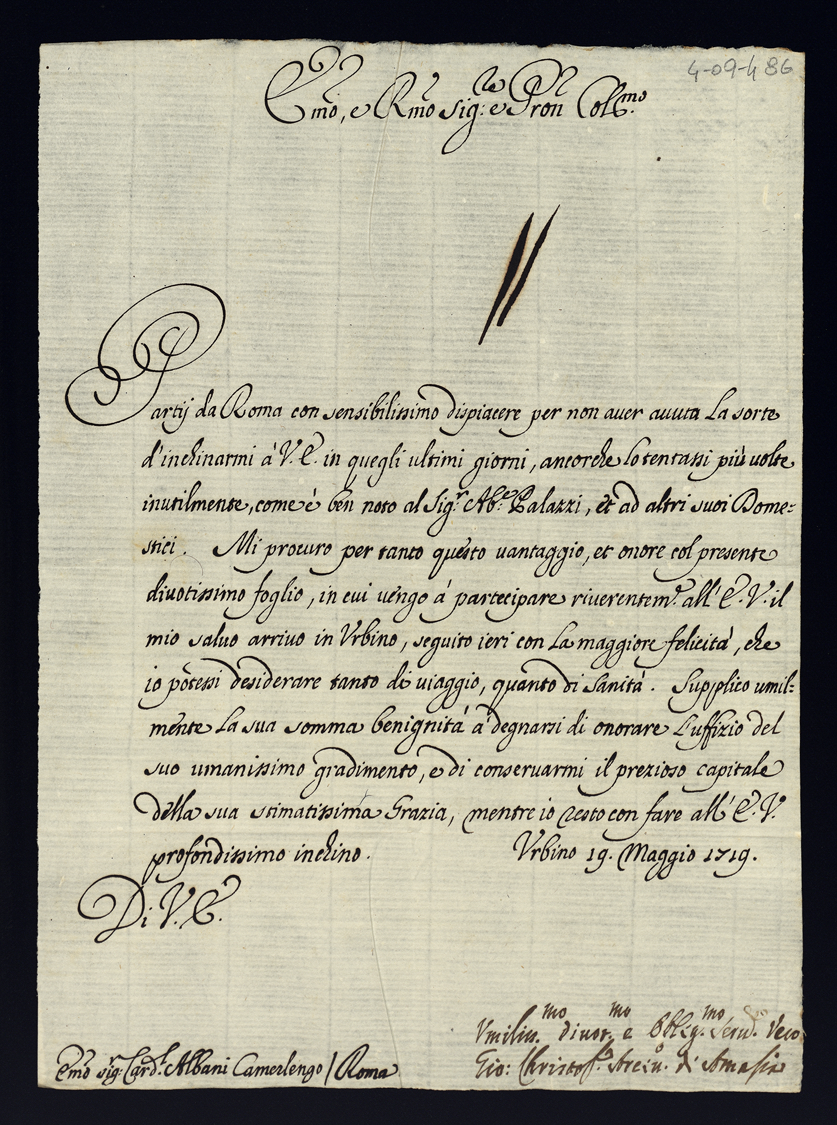 4-09-486
Emo, e Rmo Sig:re e Pron Col:mo
Partij da Roma con sensibilissimo dispiacere per non aver avuta la sorte
d'inchinarmi à V. E. in quegli ultimi giorni, ancorche lo tentassi più volte
inutilmente, come è ben noto al Sig.r Ab.e Palazzi, et ad altri suoi Dome=
stici. Mi procuro per tanto questo vantaggio, et onore col presente
divotissimo foglio, in cui vengo à partecipare riverentem.e all' E. V. il
mio salvo arrivo in Vrbino, seguito ieri con la maggiore felicità, che
io potessi desiderare tanto di viaggio, quanto di Sanità. Supplico umil=
mente la sua somma benignità à degnarsi di onorare l'uffizio del
suo umanissimo gradimento, e di conservarmi il prezioso capitale
della sua stimatissima Grazia, mentre io resto con fare all' E. V.
profondissimo inchino. Vrbino 19. Maggio 1719.
Di V. E.
Vmiliss.mo divot.mo e Obblig.mo Serv.
Gio: Christof.o Arciv.o di Amasia
Emo Sig.r Card.l Albani Camerlengo / Roma